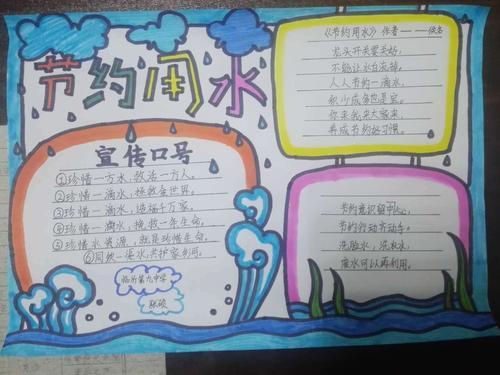 节约用水
宣传口号
①珍惜一方水，救活一方人。
②珍惜一滴水，拯救全世界。
③珍惜一滴水，造福千万家。
④珍惜一滴水，挽救一年生命。
⑤珍惜水资源，就是珍惜生命。
⑥同饮一溪水，共护家乡河。
临沂第九中学
《节约用水》作者——佚名
龙头开关要关好，
不能让水白流掉。
人人节约一滴水，
积少成多也是宝。
你来我来大家来，
养成节约好习惯。
节约意识留中心，
节约行动齐动手。
洗脸水，洗衣水，
废水可以再利用。